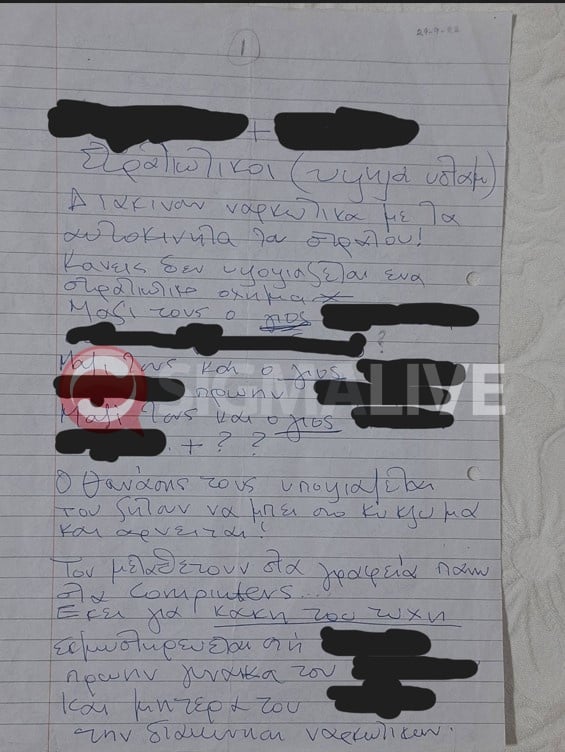 1
+
Στρατιωτικοι (ψηλά ισταμ)
Διακιναν ναρκωτικα με τα
αυτοκινητα του στρατου!
Κανεις δεν υποψιαζεται ενα
στρατιωτικο οχημα
Μαζι τους ο γιος
?
Μαζι τους και ο γιος
πρωην
Μαζι τους και ο γιος
. + ? ?
SIGMALIVE
Ο Θανάσης τους υποψιαζεται
του ζηταν να μπει στο κυκλωμα
και αρνειται!
Τον μεταθετουν στα γραφεία πανω
στα Computers...
Εκει για κακη του τυχη
εκμυστηρευεται στη
πρωην γυναικα του
και μητερα του
την διακινηση ναρκωτικων.